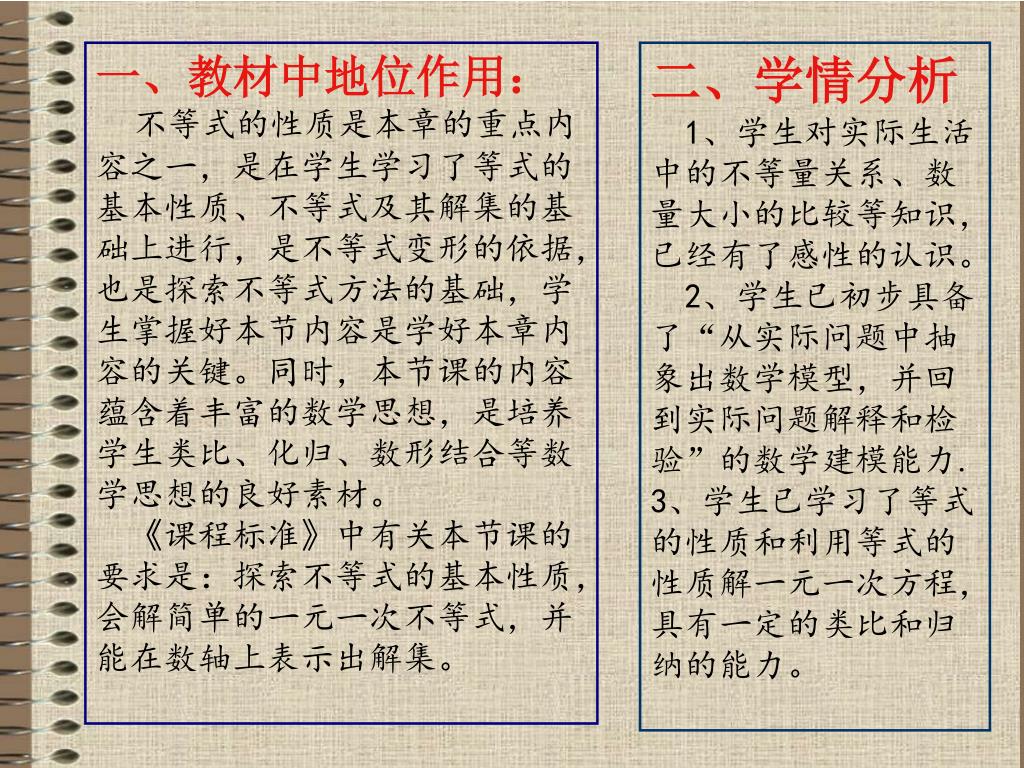 一、教材中地位作用：
不等式的性质是本章的重点内
容之一，是在学生学习了等式的
基本性质、不等式及其解集的基
础上进行，是不等式变形的依据，
也是探索不等式方法的基础，学
生掌握好本节内容是学好本章内
容的关键。同时，本节课的内容
蕴含着丰富的数学思想，是培养
学生类比、化归、数形结合等数
学思想的良好素材。
《课程标准》中有关本节课的
要求是：探索不等式的基本性质，
会解简单的一元一次不等式，并
能在数轴上表示出解集。
二、学情分析
1、学生对实际生活
中的不等量关系、数
量大小的比较等知识，
已经有了感性的认识。
2、学生已初步具备
了“从实际问题中抽
象出数学模型，并回
到实际问题解释和检
验”的数学建模能力.
3、学生已学习了等式
的性质和利用等式的
性质解一元一次方程，
具有一定的类比和归
纳的能力。